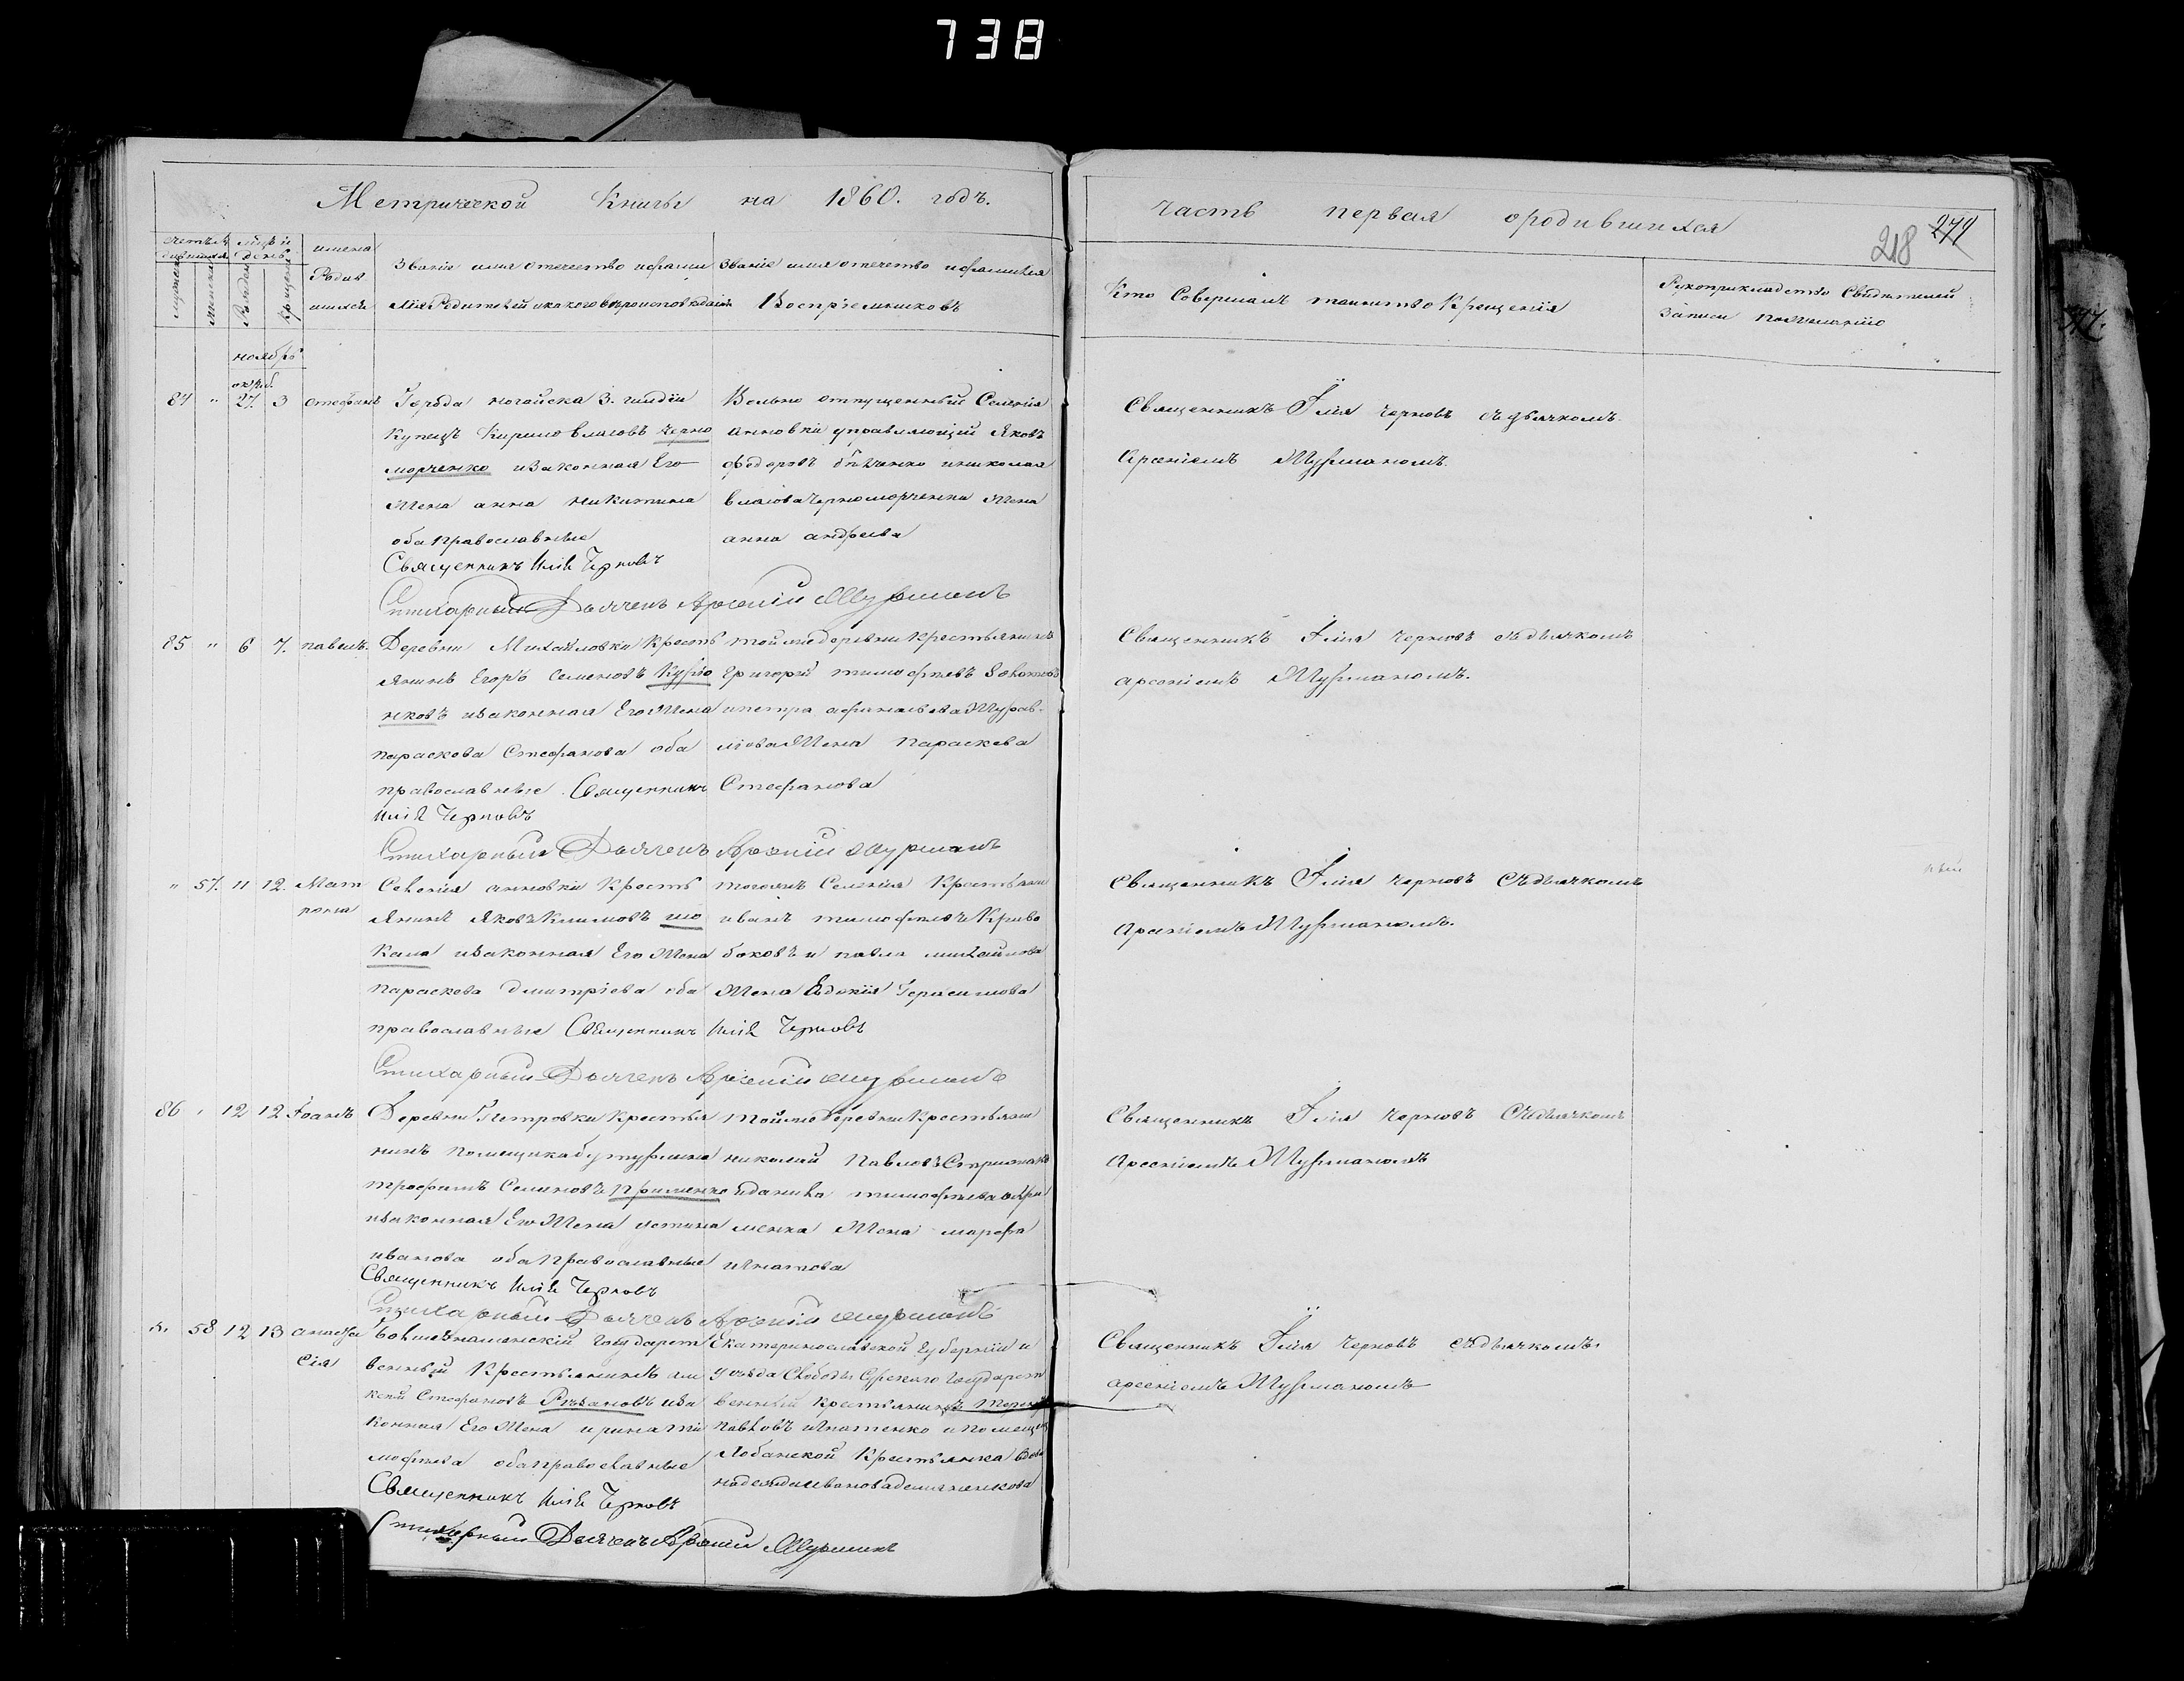 738
Метрической Книги на 1860. годъ.
часть первая ородившихся
218 279
имена
Родив
шихся
Званіе имя отечество ифамилия Родителей икакого вѣроисповѣданія
Званіе имя отечество ифамилія Воспріемниковъ
Кто Совершалъ таинство Крещенія
Рукоприкладство Свидѣтелей
Записи пожеланію
ноябрь
84 " 27. 3 стефанъ
Города ногайска 3. гилдіи
Купецъ Кирило власовъ Черно
морченко изаконная Его
Жена анна никитина
оба православные
Священникъ Илія Черновъ
Стихарный Дьячекъ Арсеній Мурманъ
Вольно отпущенный Селенія
анновки управляющій Яковъ
федоровъ инколая
власова черноморченка Жена
анна андреева
Священникъ Илія черновъ съдьячкомъ
Арсеніемъ Мурманомъ.
85 " 6 7. павелъ.
Деревни Михайловки Кресть
янинъ Егоръ Семеновъ
нковъ изаконная Его Жена
параскева Стефанова оба
православные. Священникъ
Илія Черновъ
Стихарный Дьячекъ Арсеній Мурманъ
тойже деревни Крестьянинъ
Григорій тимофѣевъ
ипетра афанасьева Журав-
лова Жена Параскева
Стефанова
Священникъ Илія черновъ съдьячкомъ
арсеніемъ Мурманомъ.
" 57. 11 12. Мат
рона
Селенія анновки Кресть
янинъ Яковъ Климовъ шо
кала изаконная Его Жена
параскева дмитріева оба
православные Священникъ Илія Черновъ
Стихарный Дьячекъ Арсеній Мурманъ
тогоже Селенія Крестьянин
иванъ тимофѣевъ Криво
боковъ и павла михайлова
Жена Евдокія Герасимова
Священникъ Илія черновъ Съдьячкомъ
Арсеніемъ Мурманомъ.
86 " 12 12 Іоанъ
Деревни Петровки Крестья
нинъ помещика бутурлина
трофимъ Семеновъ
изаконная Его Жена устина
иванова оба православные
Священникъ Илія Черновъ
Стихарный Дьячекъ Арсеній Мурманъ
тойже деревни Крестьянин
николай Павловъ
иданила тимофѣева
менка Жена марфа
игнатова
Священникъ Илія черновъ Съдьячкомъ
Арсеніемъ Мурманомъ
". 58 12 13 анаста
сія
государст
венный Крестьянинъ але
ксей Стефановъ Рязановъ иза
конная Его Жена ирина ти
мофѣева оба православные
Священникъ Илія Черновъ
Стихарный Дьячекъ Арсеній Мурманъ
Екатеринославской Губерніи и
уѣзда Слободы государст
венный крестьянинъ
Павловъ игнатенко и помещиц
Лобанской Крестьянка вдова
надежда иванова
Священникъ Илія черновъ съдьячкомъ
арсеніемъ Мурманомъ